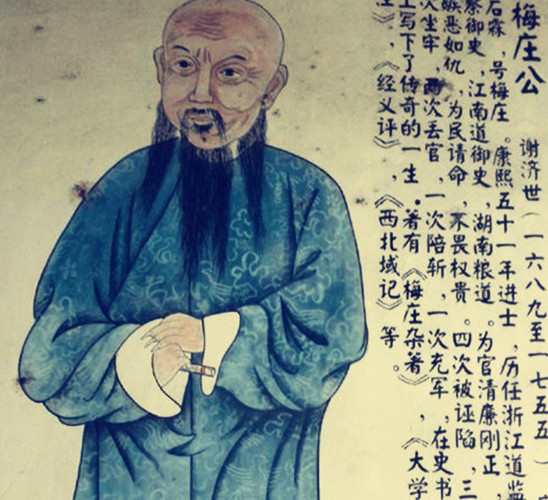 梅庄公
谢济世(一六八九至一七五五)
石霖，号梅庄。康熙五十一年进士，历任浙江道监
察御史，江南道御史，湖南粮道。为官清廉刚正，
嫉恶如仇，为民请命，不畏权贵。四次被诬陷，三
次坐牢，两次丢官，一次陪斩，一次充军，在史书
上写下了传奇的一生。著有《梅庄杂著》，《大学
》，《经义评》，《西北域记》等。